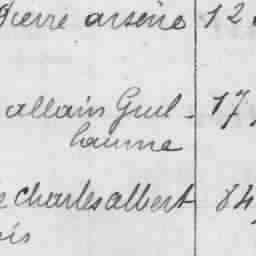 Pierre arsène 12
allain Guil- 17
laume
charles albert 84
ois